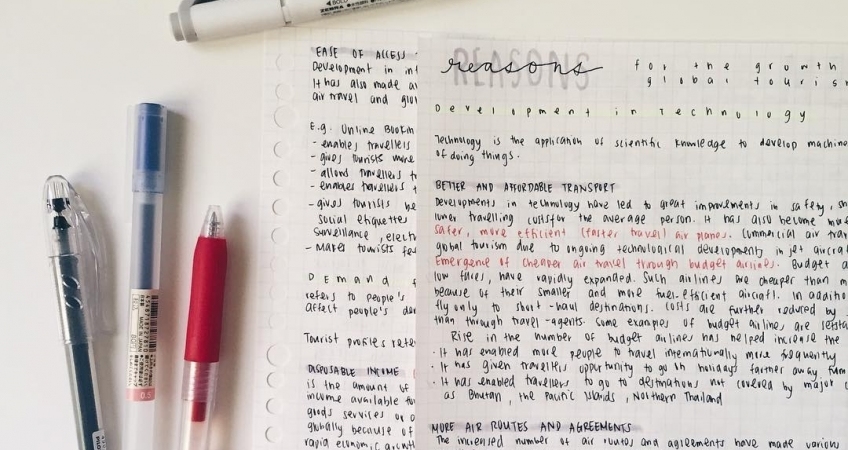 ZEBRA
EASE OF ACCESS
Development in in
It has also made a
air travel and glo
E.g. Online Bookin
- enables travellers
- gives tourists more
- allows travellers t
- enables travellers t
- gives tourists be
social etiquettes
surveillance, elect
- Makes tourists fe
Demand f
refers to people's
affect people's de
Tourist profiles refe
DISPOSABLE INCOME
is the amount of
income available to
goods services or o
globally because of
rapid economic growth
REASONS
reasons for the growth
global touris
Development in Technology
Technology is the application of scientific knowledge to develop machine
of doing things.
BETTER AND AFFORDABLE TRANSPORT
Developments in technology have led to great improvements in safety, sh
lower travelling costs for the average person. It has also become more
safer, more efficient (faster travel) air planes. Commercial air trav
global tourism due to ongoing technological developments in jet aircra
Emergence of cheaper air travel through budget airlines. Budget a
low fares, have rapidly expanded. Such airlines are cheaper than m
because of their smaller and more fuel-efficient aircraft. In additio
fly only to short-haul destinations. Costs are further reduced by
than through travel-agents. Some examples of budget airlines are Jetsta
Rise in the number of budget airlines has helped increase the
· It has enabled more people to travel internationally more frequently
· It has given travellers oppurtunity to go on holidays farther away from
· It has enabled travellers to go to destinations not covered by major
as Bhutan, the Pacific Islands, Northern Thailand
MORE AIR ROUTES AND AGREEMENTS
The increased number of air routes and agreements have made various
0.5